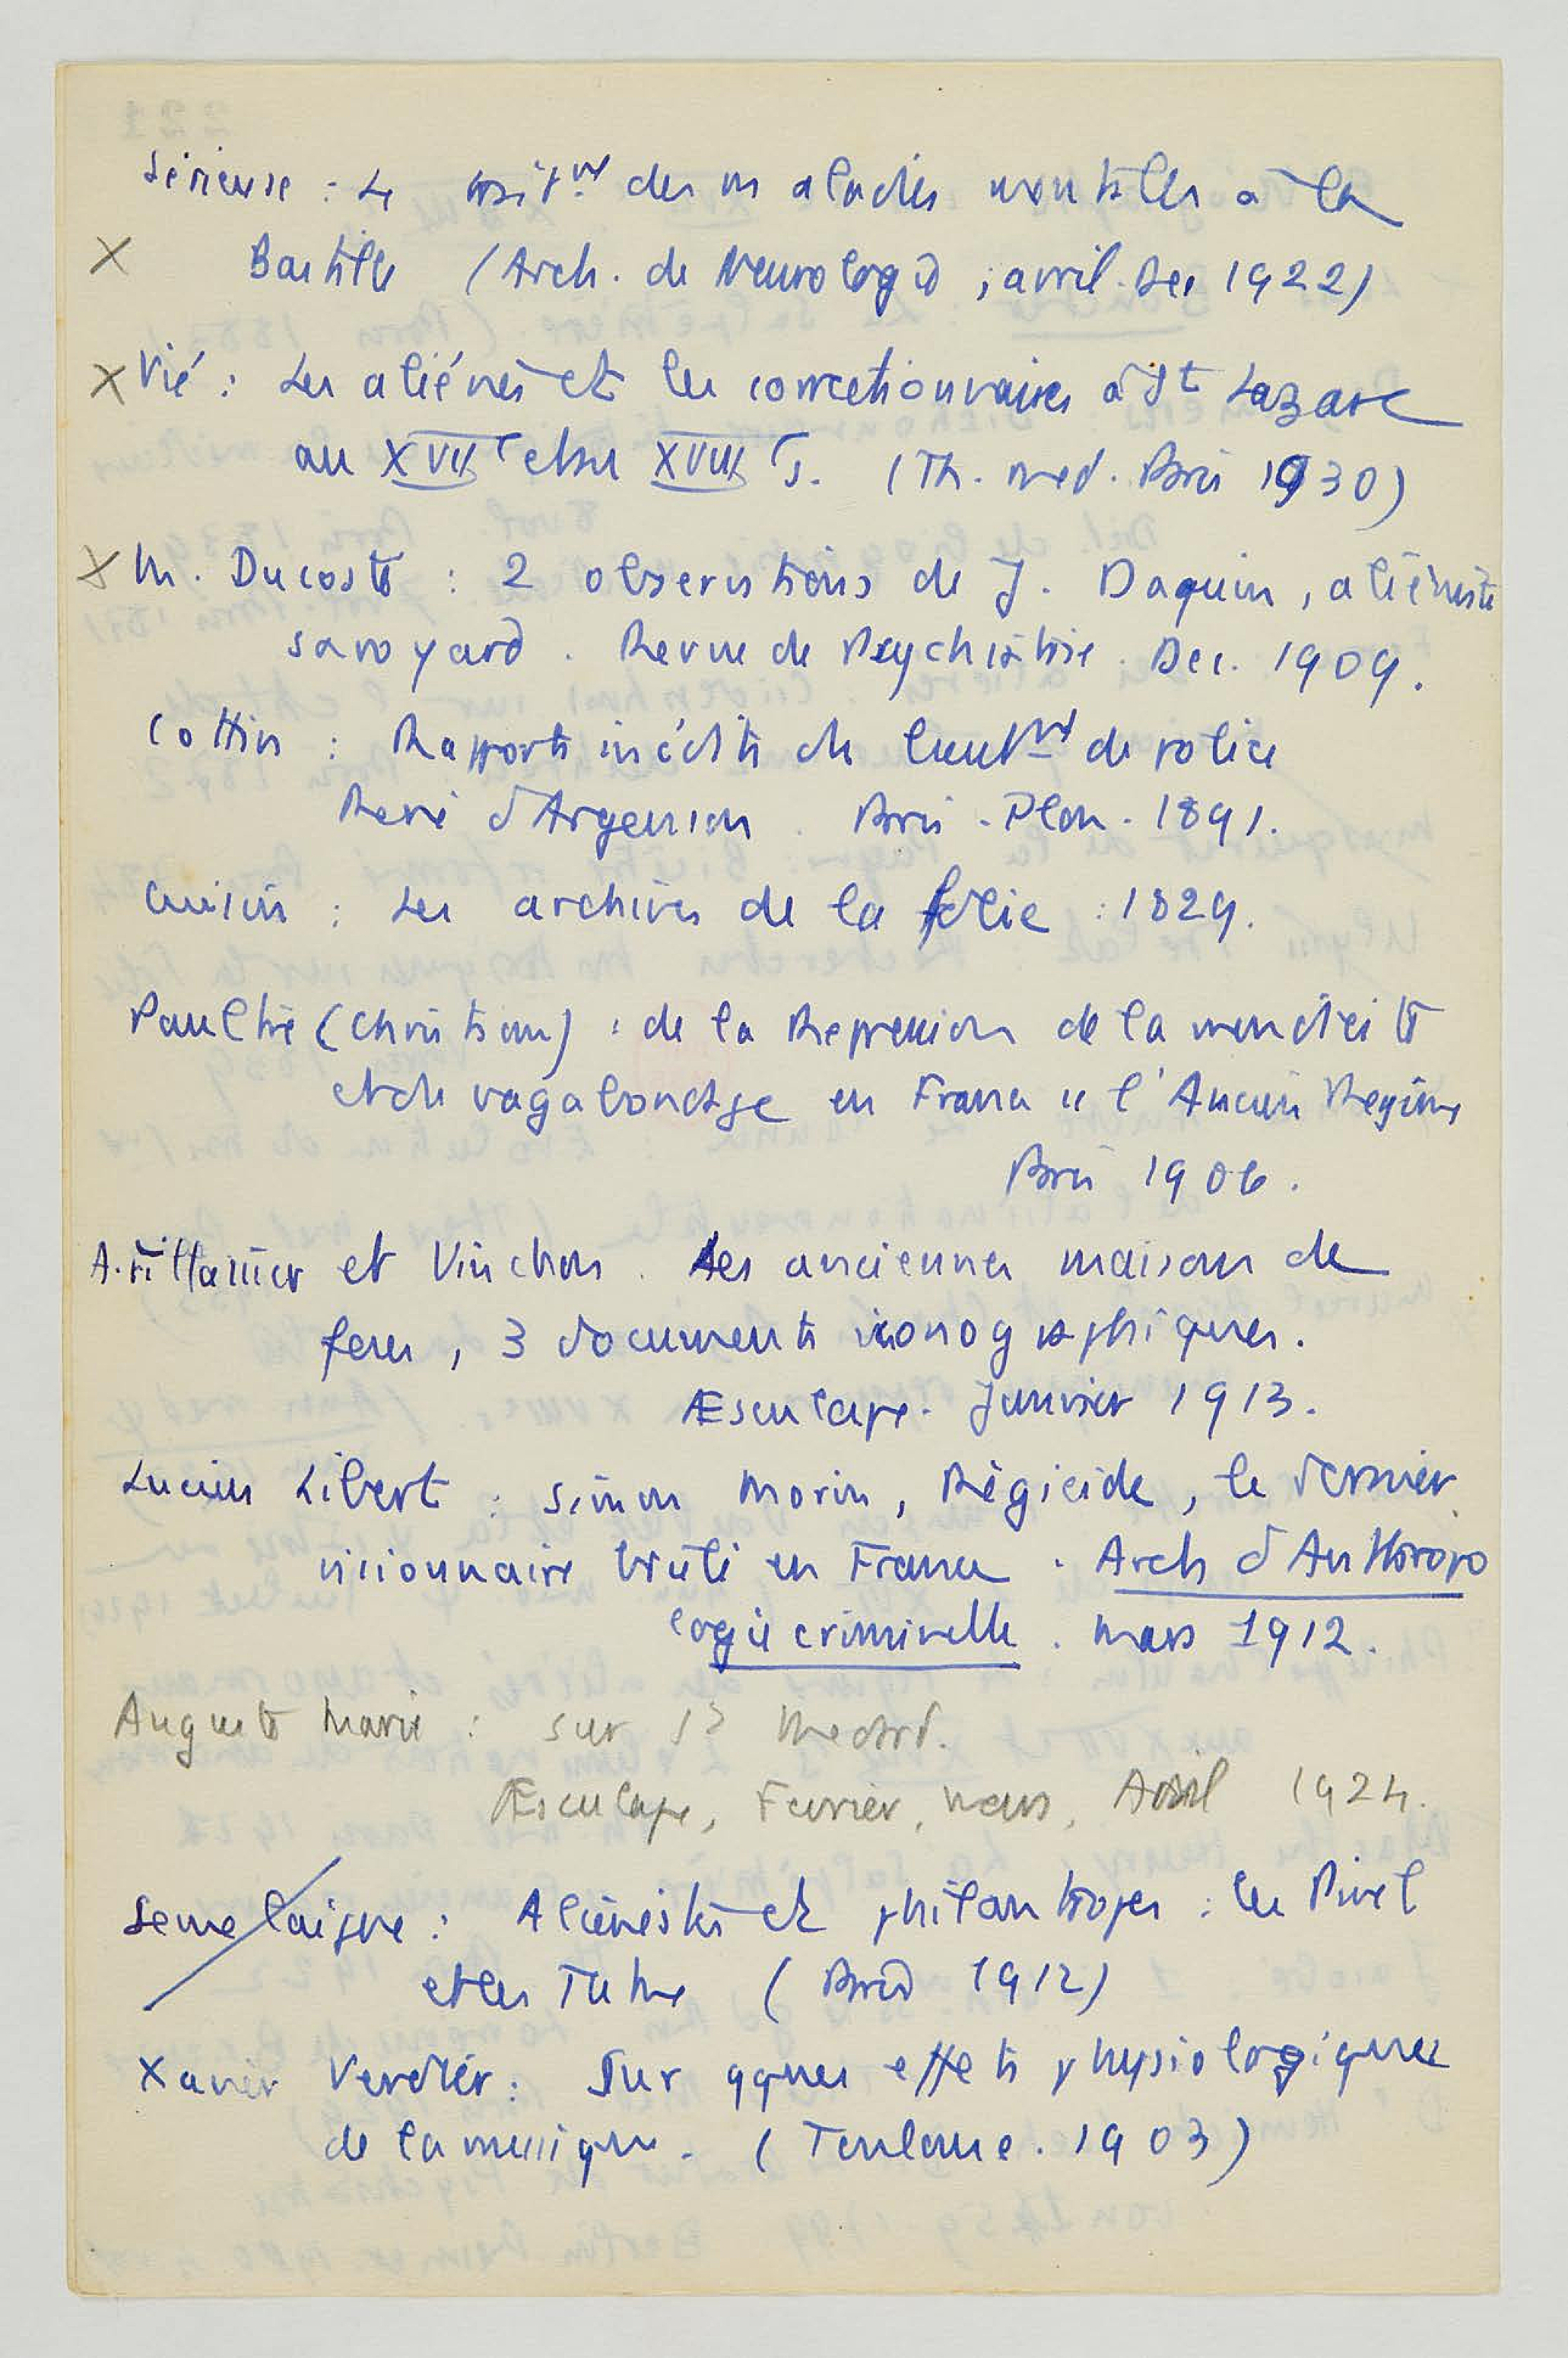 Sérieux : Le trait^nt des malades mentales à la
X Bastille (Arch. de Neurologie, avril-Dec 1922)
X Vié : Les aliénés et les correctionnaires à St Lazare
au XVII e et au XVIII e s. (Th. med. Paris 1930)
X M. Ducosté : 2 observations de J. Daquin, aliéniste
savoyard. Revue de Psychiatrie. Dec. 1909.
Cottin : Rapports inédits du lieut^nt de police
René d'Argenson. Paris - Plon - 1891.
Cuisin : Les archives de la folie : 1829.
Paultre (Christian) : de la Repression de la mendicité
et du vagabondage en France ss l'Ancien Regime
Paris 1906.
A. Fillassier et Vinchon. Les anciennes maisons de
fous, 3 documents iconographiques.
Æsculape. Janvier 1913.
Lucien Libert : Simon Morin, Régicide, le dernier
visionnaire brulé en France. Arch d'Anthropo
logie criminelle. Mars 1912.
Auguste Marie : sur St Medard.
Æsculape, Fevrier, Mars, Avril 1924.
Semelaigne : Aliénistes et philantropes : les Pinel
et les Tuke (Paris 1912)
Xavier Verdier : Sur qques effets physiologiques
de la musique. (Toulouse. 1903)